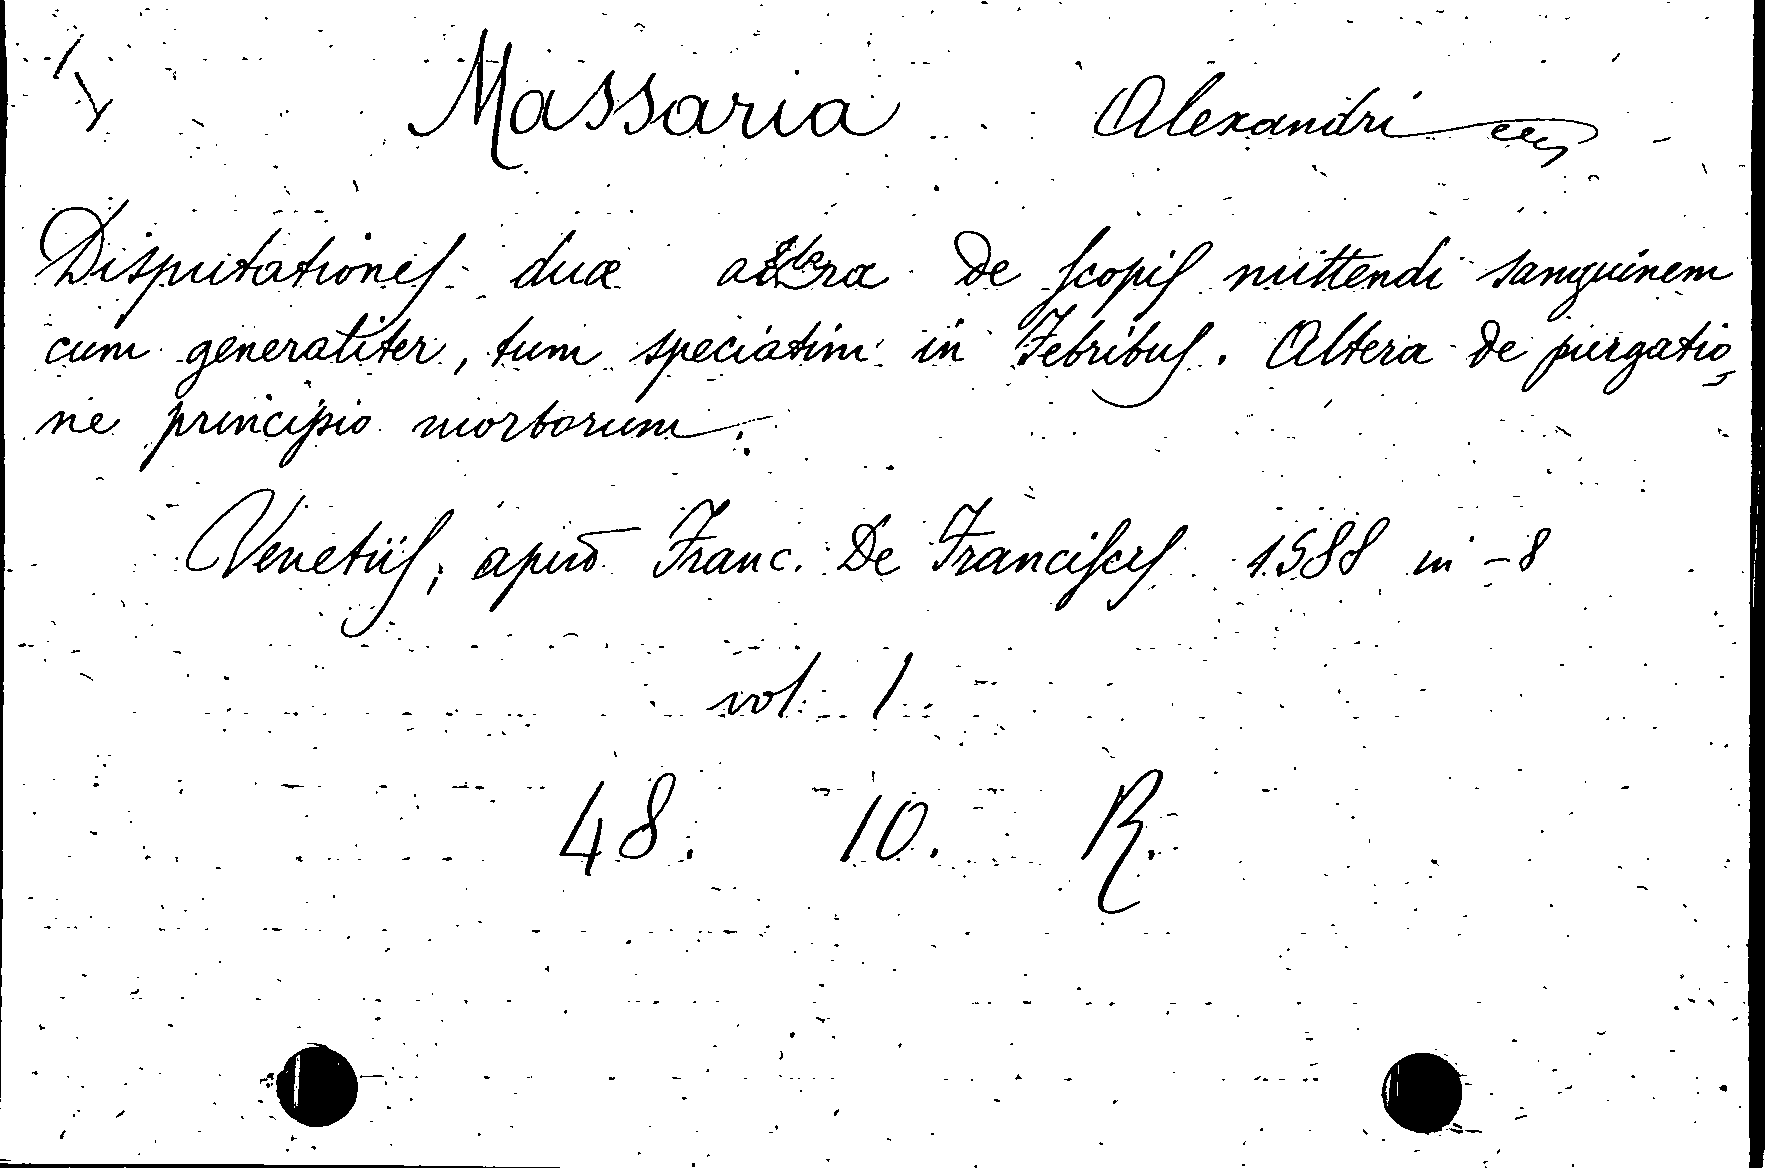 Massaria Alexandri
Disputationes duæ altera de scopis mittendi sanguinem
cum generaliter, tum speciatim in Febribus. Altera de purgatio
ne principio morborum.
Venetiis, apud Franc. De Franciscis 1588 in-8
vol. 1.
48. 10. R.